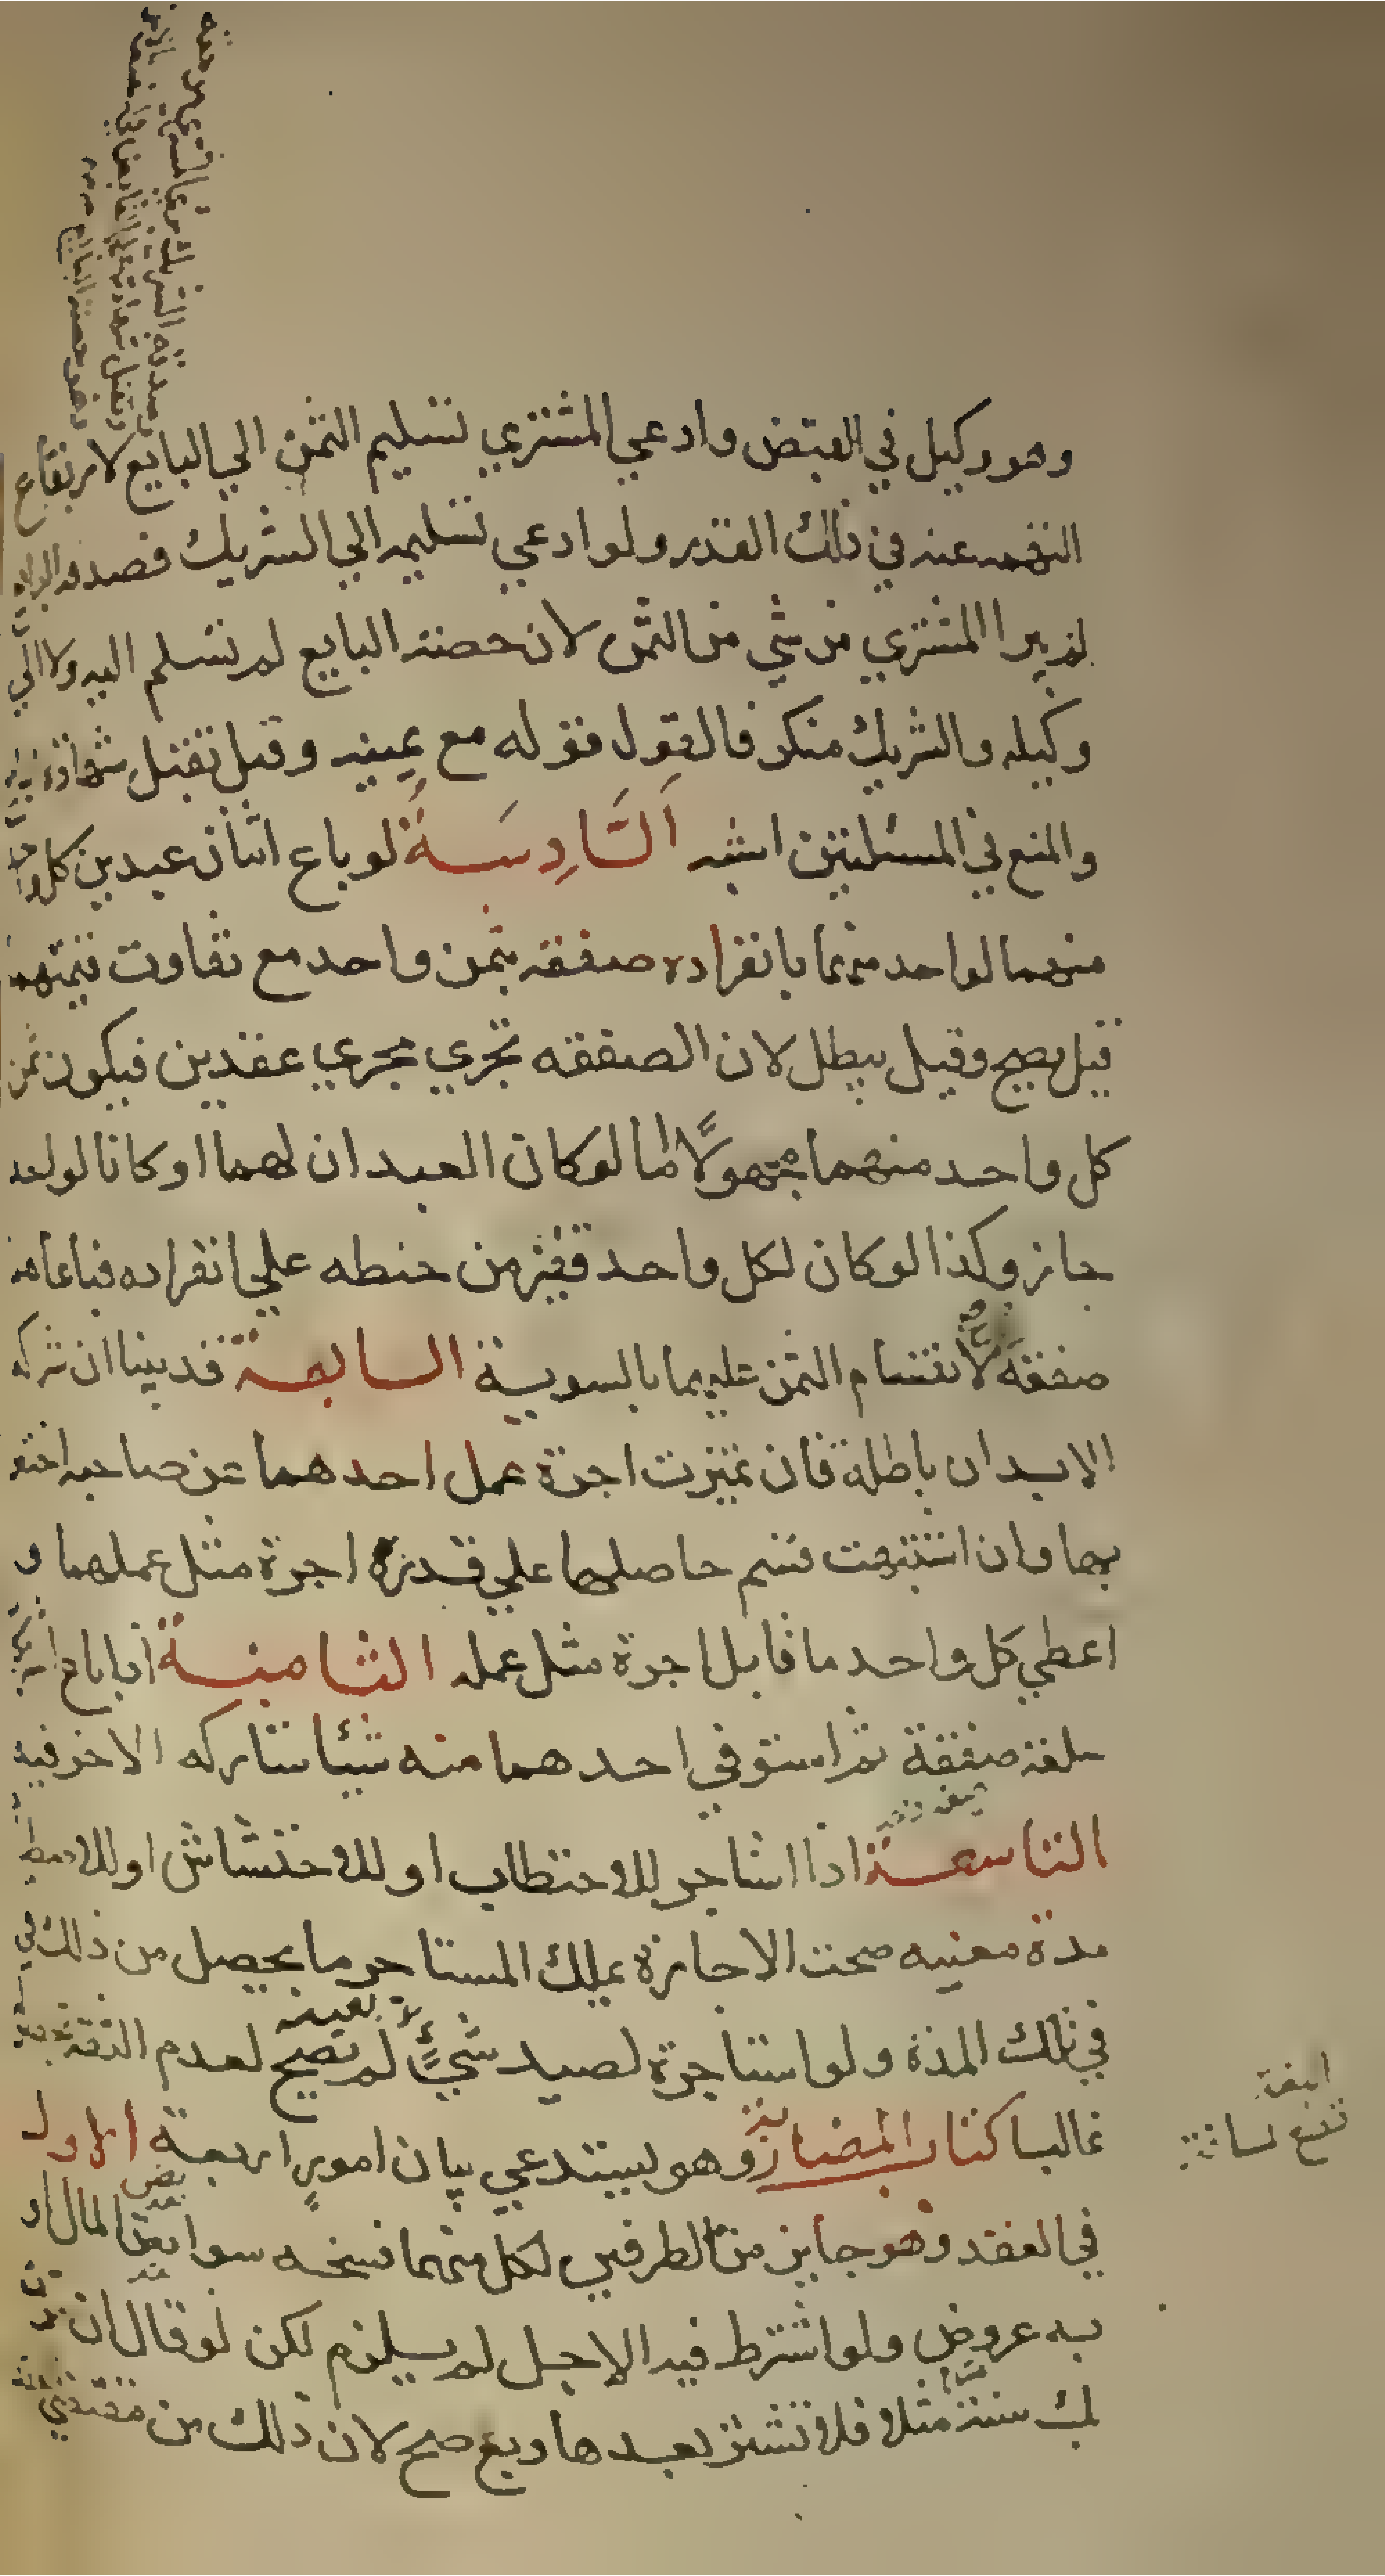 وهو وكيل في القبض وادعي المشتري تسليم الثمن الي البايع لارتفاع
التهمه عنه في ذلك القدر ولو ادعي تسليمه الي الشريك فصدقه البايع
لم يبرا المشتري من شي من الثمن لان حصته البايع لم تسلم اليه ولا الي
وكيله والشريك منكر فالقول قوله مع يمينه وقيل تقبل شهادة
والمنع في المسئلتين اشبه اَلسَّادِسَةُ لو باع اثنان عبدين كل واحد
منهما لواحد منهما بانفراده صفقه بثمن واحد مع تفاوت قيمتهما
قيل يصح وقيل يبطل لان الصفقه تجري مجري عقدين فيكون ثمن
كل واحد منهما مجهولًا اما لو كان العبدان لهما او كانا لواحد
جاز وكذا لو كان لكل واحد قفيز من حنطه علي انفراده فباعاهما
صفقة لانقسام الثمن عليهما بالسوية السابعة قد بينا ان شركه
الابدان باطلة فان تميزت اجرة عمل احدهما عن صاحبه اختص
بها وان اشتبهت قسم حاصلهما علي قدر اجرة مثل عملهما و
اعطي كل واحد ما قابل اجرة مثل عمله الثامنة اذا باع
سلعة صفقة ثم استوفي احدهما منه شيئا شاركه الاخر فيه
التاسعة اذا استاجر للاحتطاب او للاحتشاش او للاصطياد
مدة معينه صحت الاجازة يملك المستاجر ما يحصل من ذلك في
في تلك المدة ولو استاجرة لصيد شيءٍ لا بعينه لم تصح لعدم الثقة
غالبا كتاب المضاربة وهو يستدعي بيان امورٍ اربعة الاول
في العقد وهو جايز من الطرفين لكل منهما فسخه سوا نض المال او
به عروض ولو اشترط فيه الاجل لم يلزم لكن لو قال ان
بك سنة مثلا فلا تشتر بعدها وبع صح لان ذلك من مقتضي